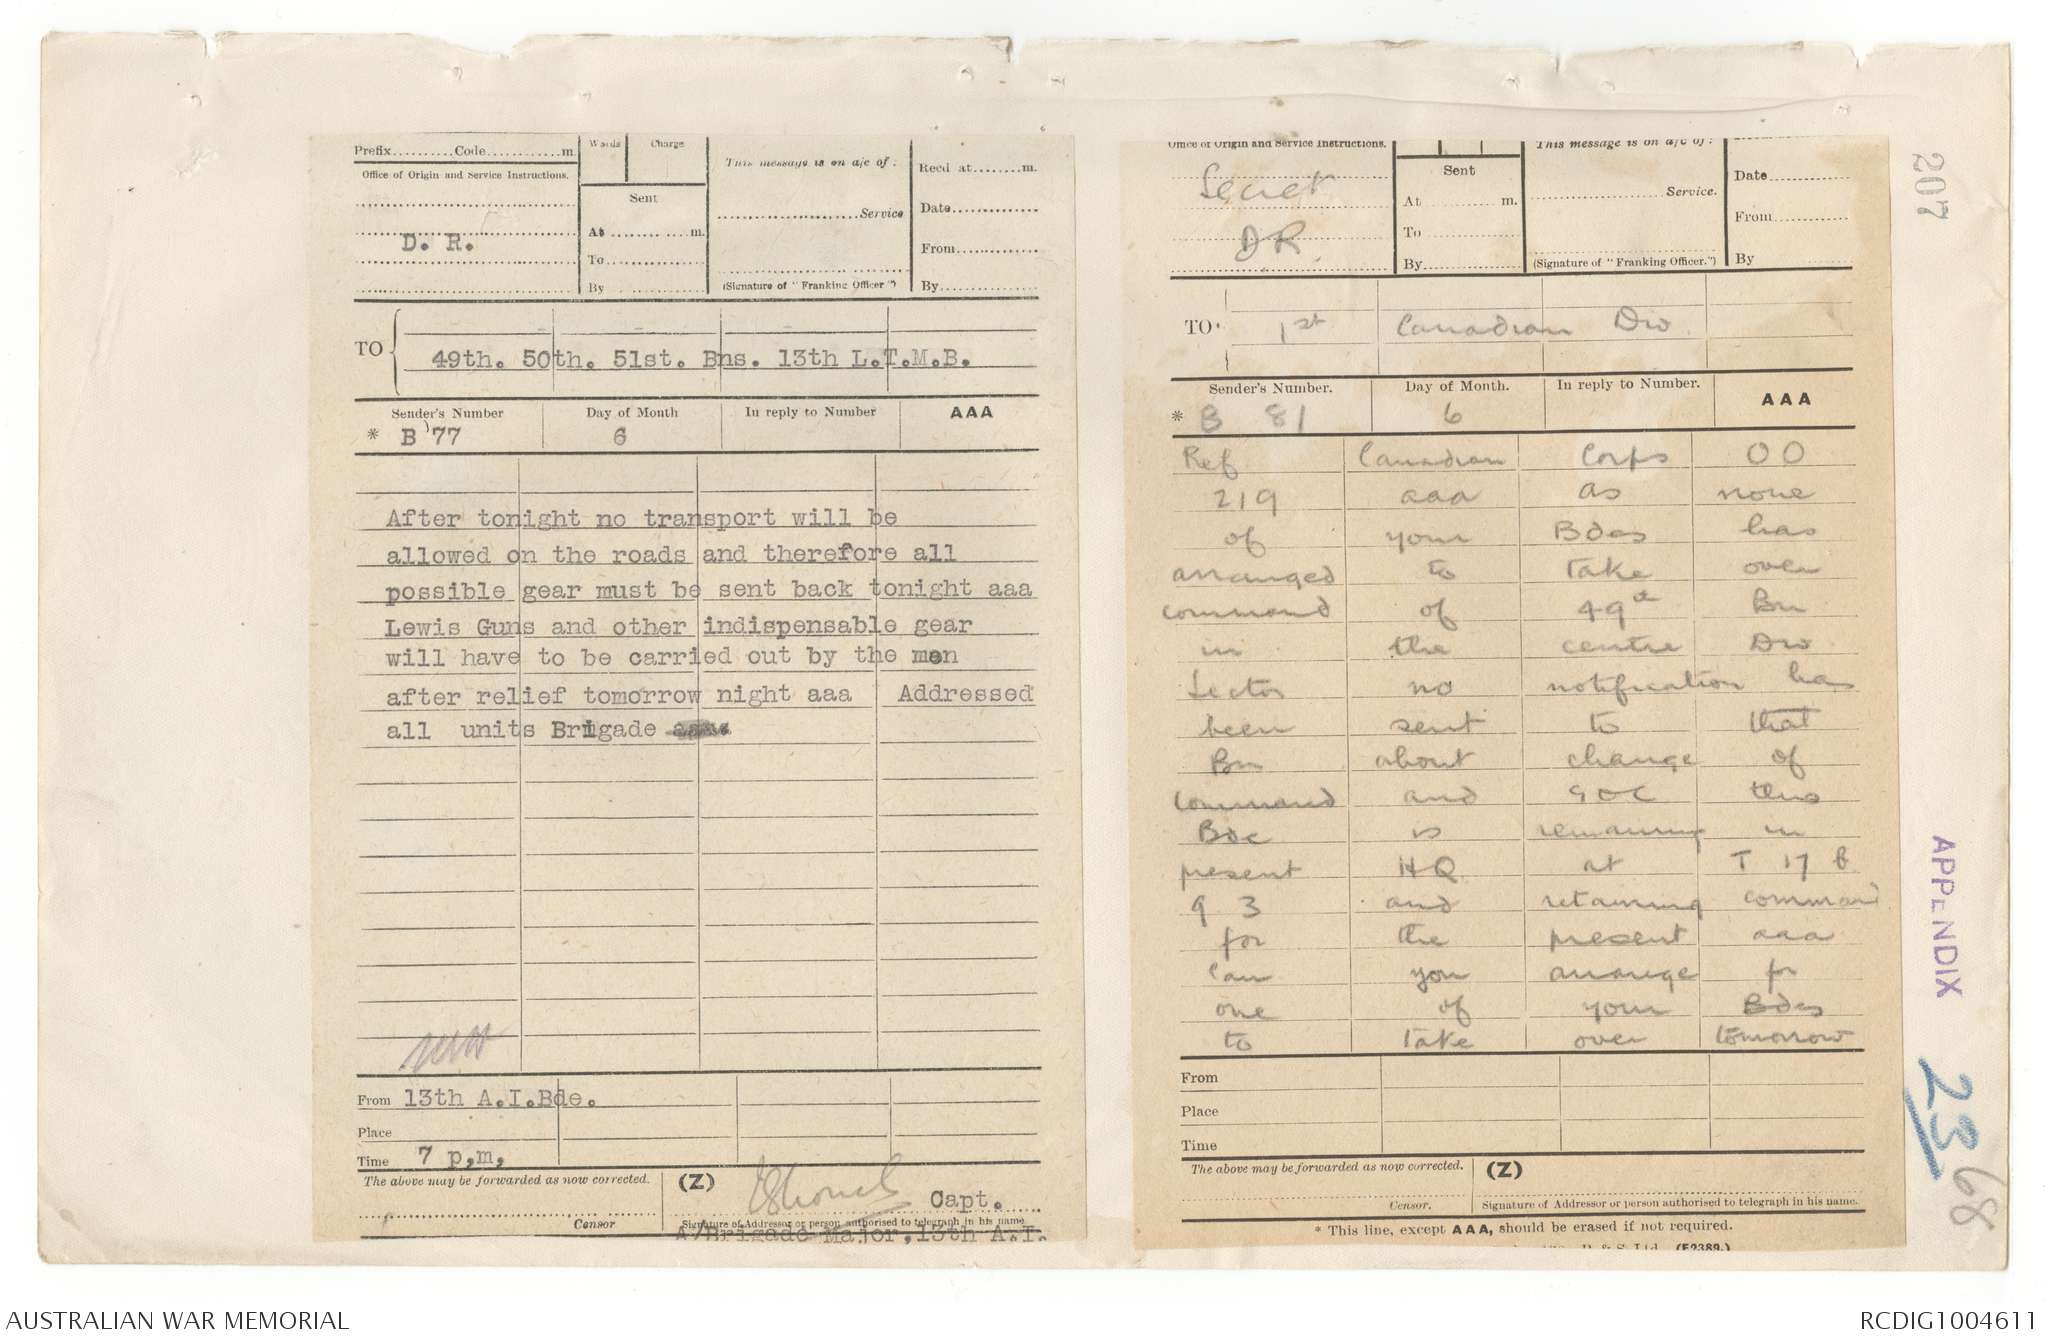 Prefix..........Code............m
Words
Charge
This message is on a/c of:
Recd at........m.
Office of Origin and Service Instructions.
Sent
Service
Date
D. R.
At ............m.
From
To
By
(Signature of "Franking Officer")
By
TO
49th. 50th. 51st. Bns. 13th L.T.M.B.
Sender's Number
Day of Month
In reply to Number
AAA
* B 77
6
After tonight no transport will be
allowed on the roads and therefore all
possible gear must be sent back tonight aaa
Lewis Guns and other indispensable gear
will have to be carried out by the men
after relief tomorrow night aaa Addressed
all units Brigade
From 13th A.I.Bde.
Place
Time 7 p,m,
The above may be forwarded as now corrected.
(Z)
Capt.
Censor
Signature of Addressor or person authorised to telegraph in his name
A/Brigade Major, 13th A.I.
Office of Origin and Service Instructions.
This message is on a/c of:
Secret
Sent
Date
At ............m.
Service.
DR
To
From
By
(Signature of "Franking Officer.")
By
TO
1st Canadian Div
Sender's Number.
Day of Month.
In reply to Number.
AAA
* B 81
6
Ref Canadian Corps OO
219 aaa as none
of your Bdes has
arranged to take over
command of 49th Bn
in the centre Div
Sector no notification has
been sent to that
Bn about change of
command and GOC this
Bde is remaining in
present HQ at T 17 b
9 3 and retaining command
for the present aaa
Can you arrange for
one of your Bdes
to take over tomorrow
From
Place
Time
The above may be forwarded as now corrected.
(Z)
Censor.
Signature of Addressor or person authorised to telegraph in his name.
* This line, except AAA, should be erased if not required.
(E2389.)
207
APPENDIX
23
68
AUSTRALIAN WAR MEMORIAL
RCDIG1004611